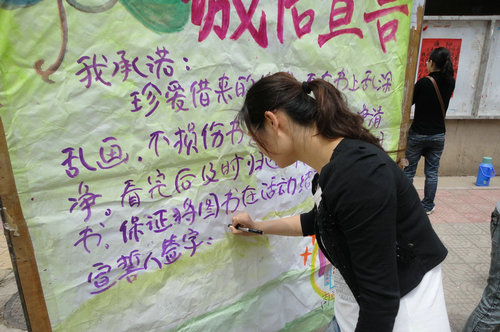 诚信宣言
我承诺：
珍爱借来的
乱画，不损伤书
净。看完后及时归
书，保证将图书在活动结
宣誓人签字：